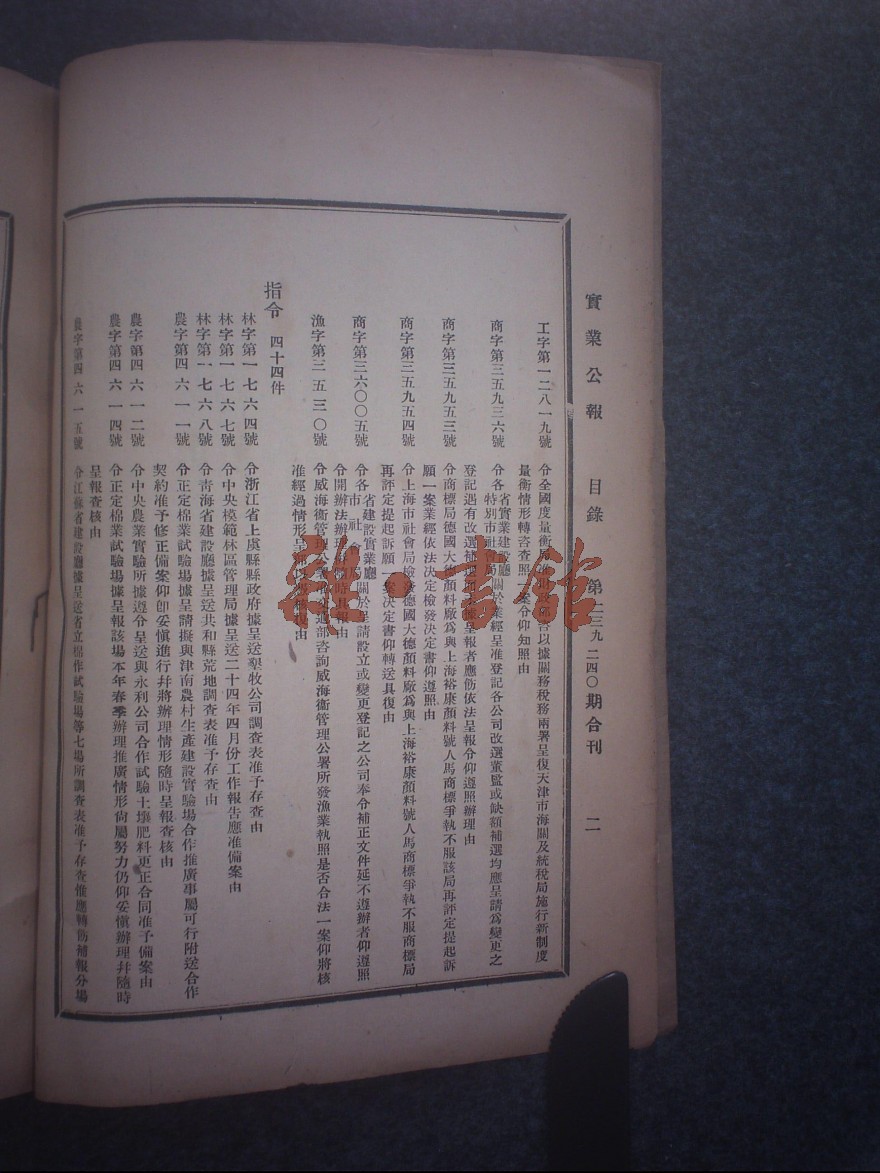 實業公報 目錄 第二三九二四〇期合刊 二
工字第一二八一九號 令全國度量衡局 以據關務稅務兩署呈復天津市海關及統稅局施行新制度
量衡情形轉咨查照一案令仰知照由
商字第三五九三六號 令各省實業建設廳特別市社會局關於業經呈准登記各公司改選董監或缺額補選均應呈請為變更之
登記遇有改選補選 據呈報者應飭依法呈報令仰遵照辦理由
商字第三五九五三號 令商標局德國大德顏料廠為與上海裕康顏料號人馬商標爭執不服該局再評定提起訴
願一案業經依法決定檢發決定書仰遵照由
商字第三五九五四號 令上海市社會局檢發德國大德顏料廠為與上海裕康顏料號人馬商標爭執不服商標局
再評定提起訴願 案決定書仰轉送具復由
商字第三六〇〇五號 令各省建設實業廳市社會局關於呈請設立或變更登記之公司奉令補正文件延不遵辦者仰遵照
令開辦法辦 隨時具報由
漁字第三五三〇號 令威海衞管理公署 交通部咨詢威海衞管理公署所發漁業執照是否合法一案仰將核
准經過情形呈 核復由
指令 四十四件
林字第一七六四號 令浙江省上虞縣縣政府據呈送墾牧公司調查表准予存查由
林字第一七六七號 令中央模範林區管理局據呈送二十四年四月份工作報告應准備案由
林字第一七六八號 令青海省建設廳據呈送共和縣荒地調查表准予存查由
農字第四六一一號 令正定棉業試驗場據呈請擬與津南農村生產建設實驗場合作推廣事屬可行附送合作
契約准予修正備案仰卽妥愼進行幷將辦理情形隨時呈報查核由
農字第四六一二號 令中央農業實驗所據遵令呈送與永利公司合作試驗土壤肥料更正合同准予備案由
農字第四六一四號 令正定棉業試驗場據呈報該場本年春季辦理推廣情形尙屬努力仍仰妥愼辦理幷隨時
呈報查核由
農字第四六一五號 令江蘇省建設廳據呈送省立棉作試驗場等七場所調查表准予存查惟應轉飭補報分場
雜·書館